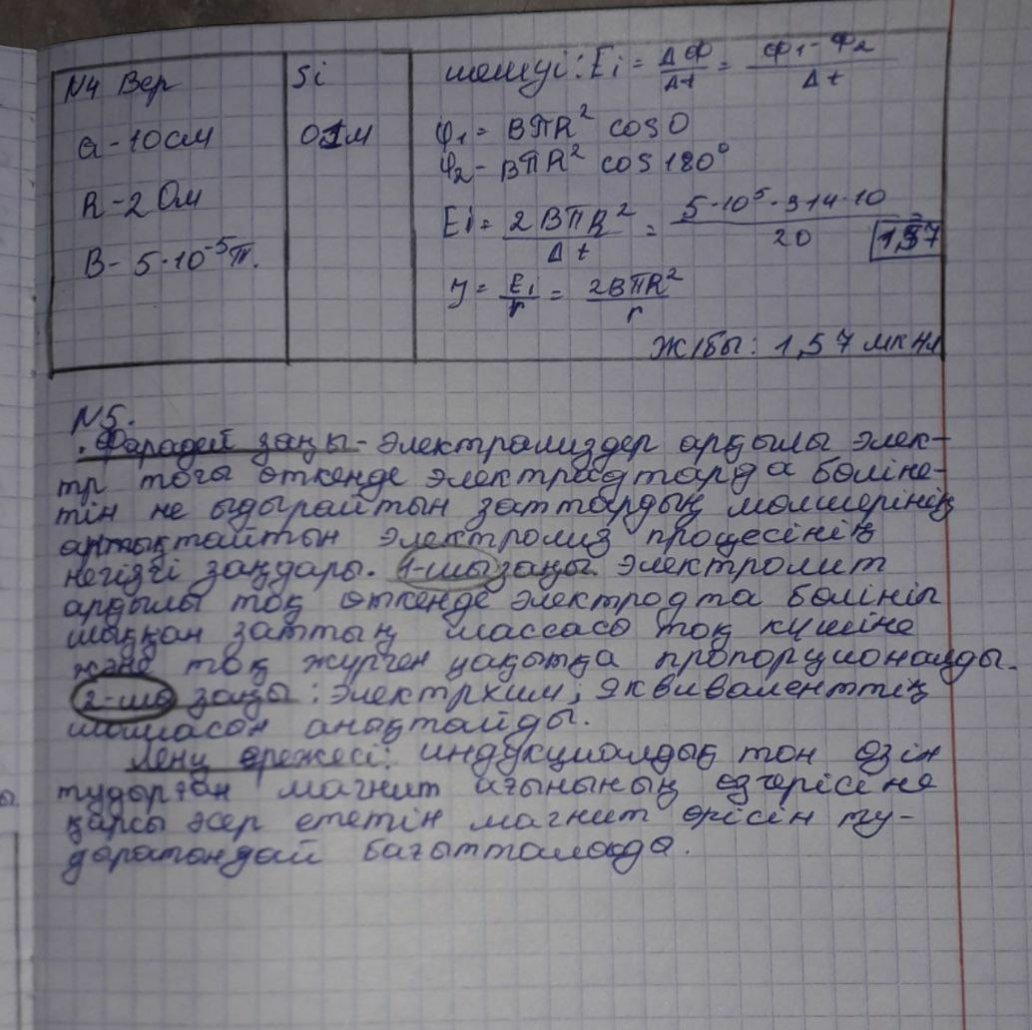 N4 Бер
a - 10 см
R - 2 Ом
B - 5·10⁻⁵ Тл.
Si
0,1м
шешуі: Ei = ΔФ/Δt = Ф₁ - Ф₂/Δt
φ₁ = BπR² cos 0
φ₂ - BπR² cos 180°
Ei = 2BπR²/Δt = 5·10⁵·314·10/20 1,57
J = Ei/r = 2BπR²/r
Ж/бы: 1,57 мк Кл
N5.
. Фарадей заңы - электролиздер арқылы элек-
тр тогы өткенде электродтарда бөліне-
тін не ыдырайтын заттардың мөлшерінің
антықтайтын электролиз процесінің
негізгі заңдары. 1-шы заңы. Электролит
арқылы тоқ өткенде электродта бөлініп
шыққан заттың массасы тоқ күшіне
және тоқ жүрген уақытқа пропорционалды.
2-ші заңы: электрхим; эквиваленттің
шамасын анықтайды.
Ленц ережесі: индукциялдық тон өзін
тудырған магнит ағынының өзгерісіне
қарсы әсер ететін магнит өрісін ту-
дыратындай бағытталады.